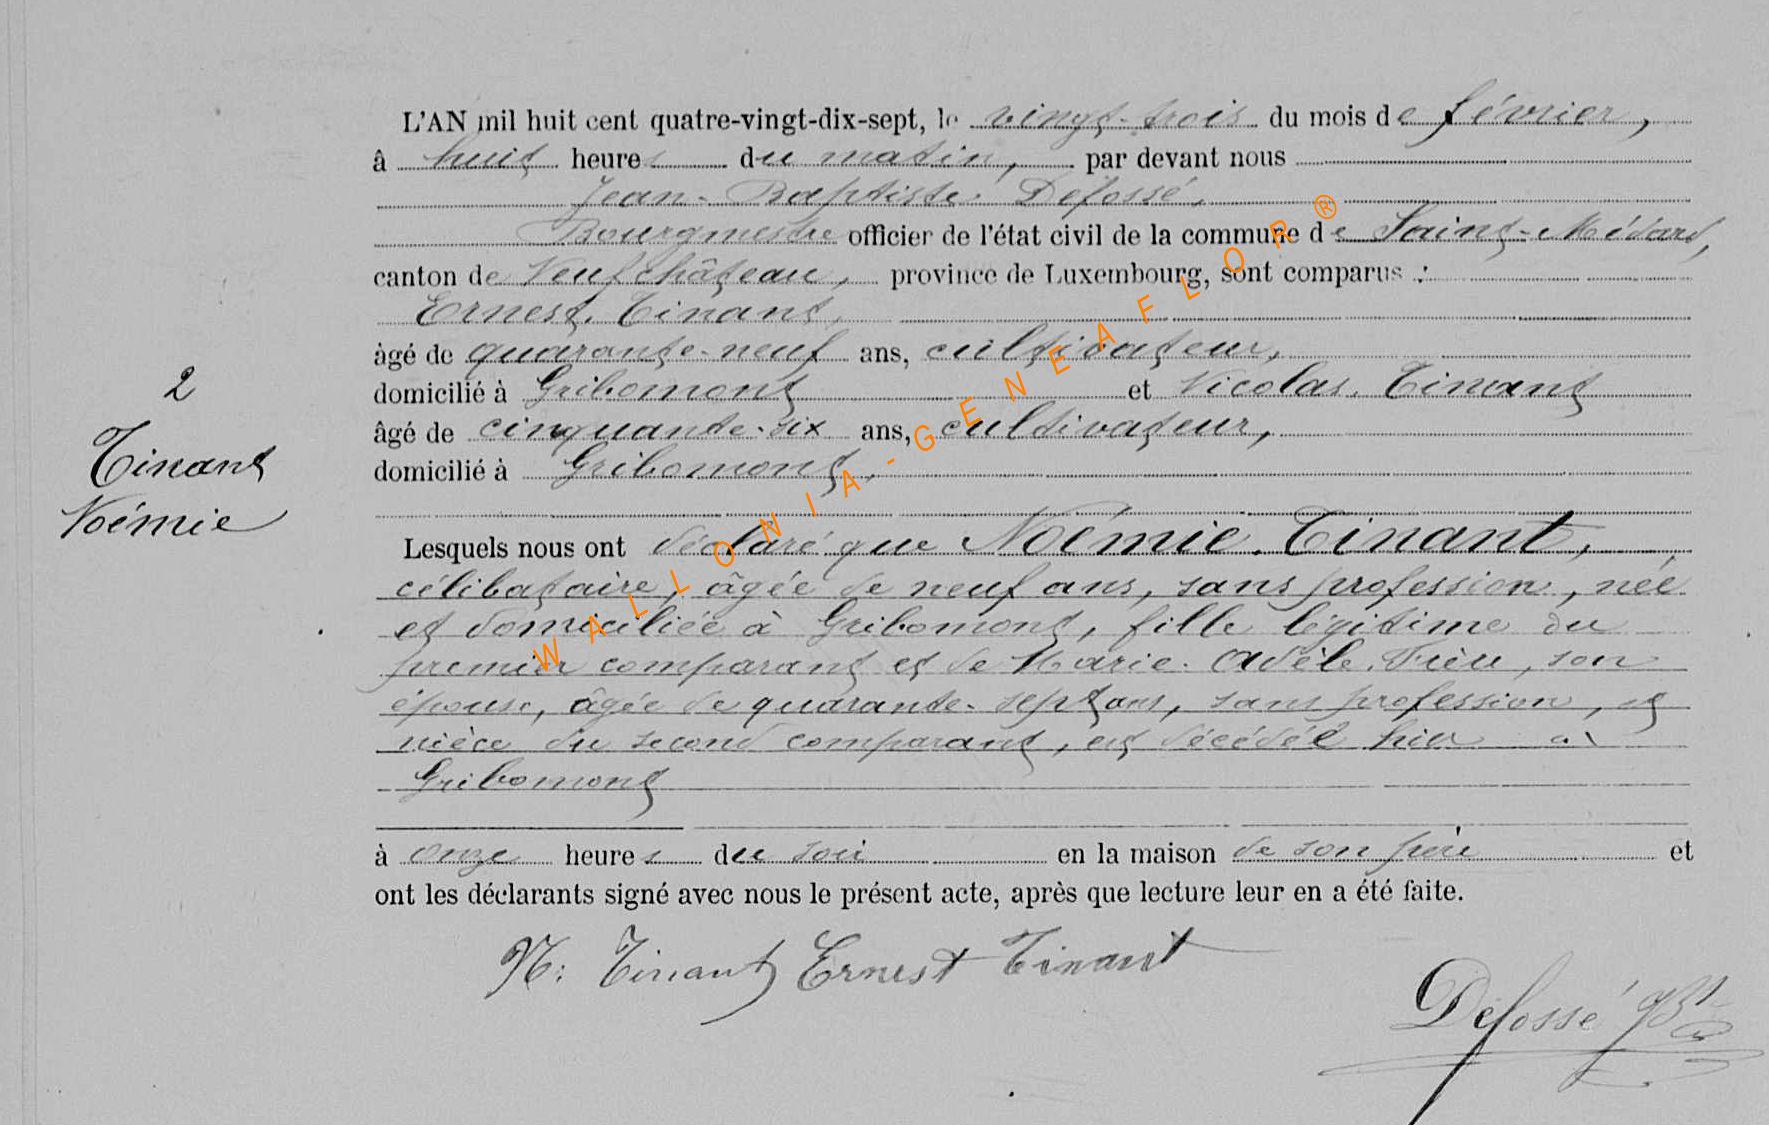 L'AN mil huit cent quatre-vingt-dix-sept, le vingt-trois du mois de février,
à huit heures du matin, par devant nous
Jean-Baptiste Defossé,
Bourgmestre officier de l'état civil de la commune de Saint-Médard,
canton de Neufchâteau, province de Luxembourg, sont comparus :
Ernest Tinant,
âgé de quarante-neuf ans, cultivateur,
domicilié à Gribomont et Nicolas Tinant
âgé de cinquante-six ans, cultivateur,
domicilié à Gribomont,
2
Tinant
Noémie
Lesquels nous ont déclaré que Noémie Tinant,
célibataire, âgée de neuf ans, sans profession, née
et domiciliée à Gribomont, fille légitime du
premier comparant et de Marie-Adèle, son
épouse, âgée de quarante-sept ans, sans profession, et
nièce du second comparant, est décédée hier à
Gribomont
à onze heures du soir en la maison de son père et
ont les déclarants signé avec nous le présent acte, après que lecture leur en a été faite.
N: Tinant Ernest Tinant
Defossé JBt
WALLONIA-GENEAFLOR®